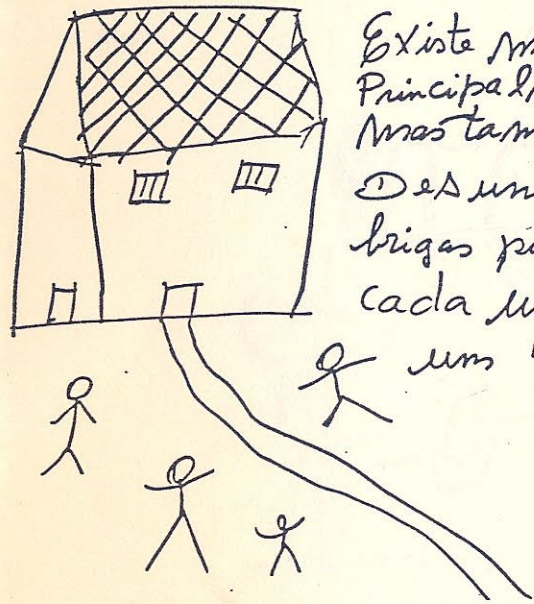 Existe
Principal
mas tam
Desun
brigas p
cada u
um